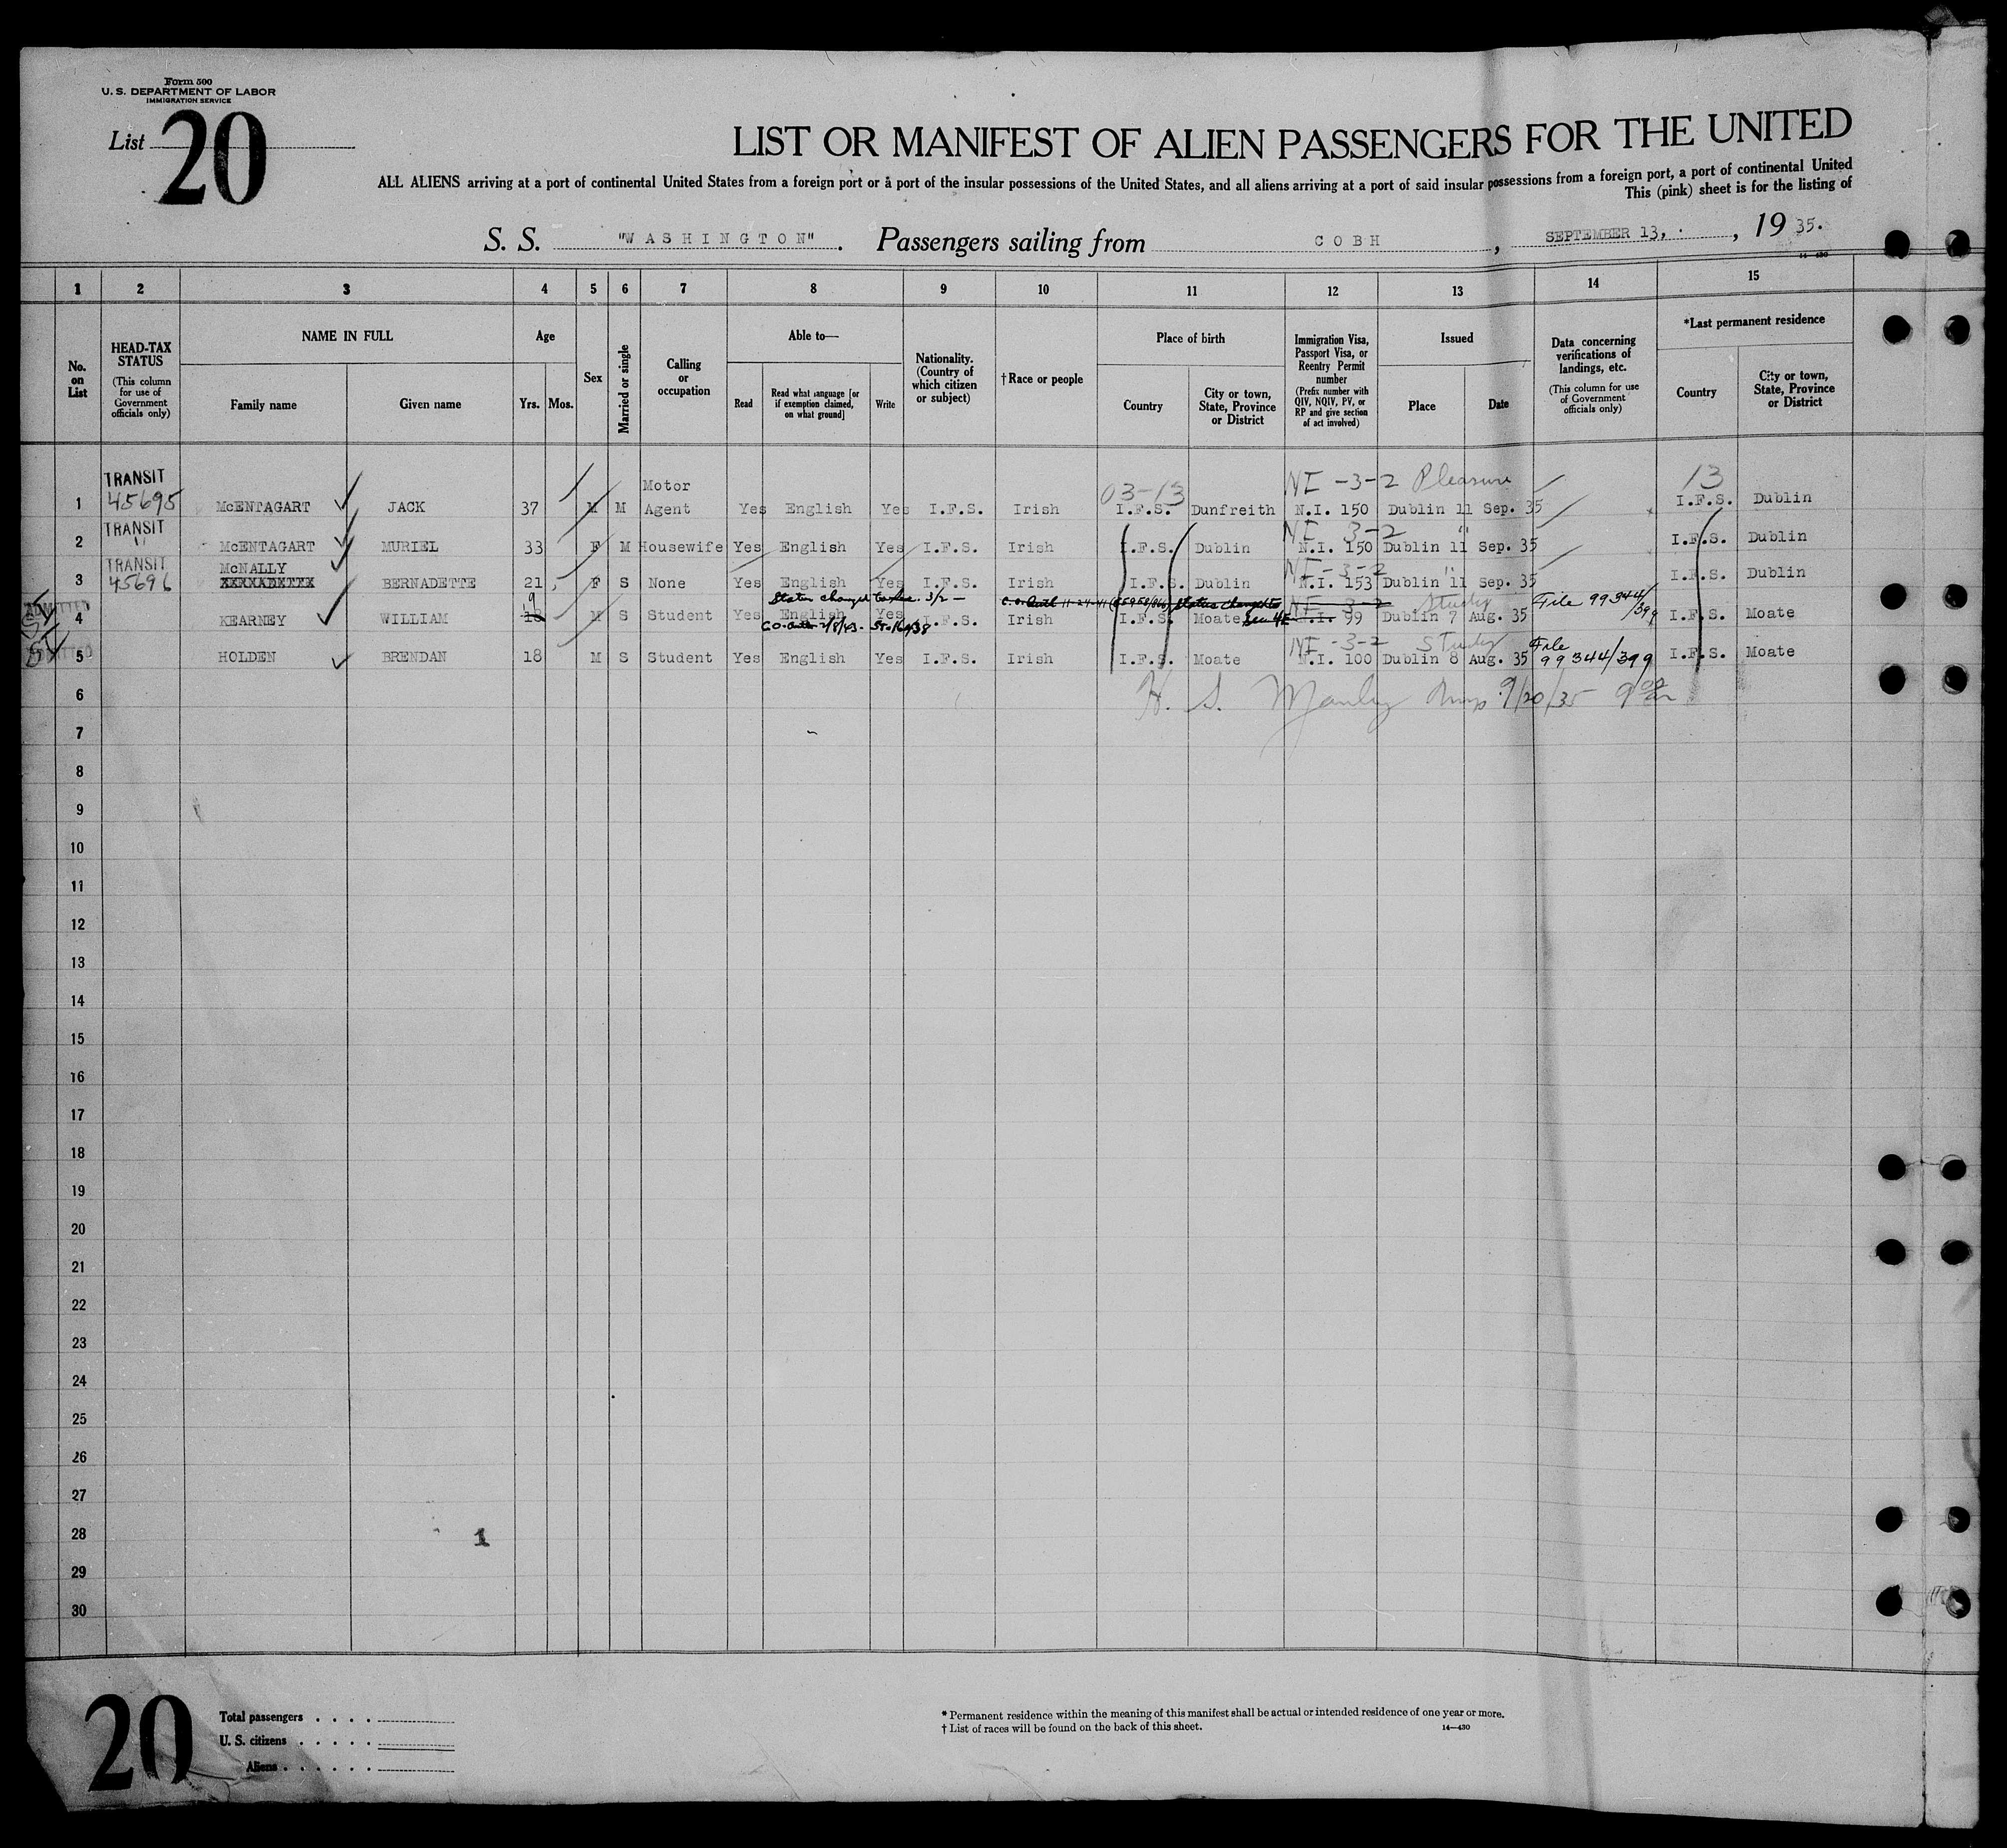 Form 500
U. S. DEPARTMENT OF LABOR
IMMIGRATION SERVICE
List 20
LIST OR MANIFEST OF ALIEN PASSENGERS FOR THE UNITED
ALL ALIENS arriving at a port of continental United States from a foreign port or a port of the insular possessions of the United States, and all aliens arriving at a port of said insular possessions from a foreign port, a port of continental United
This (pink) sheet is for the listing of
S. S. "WASHINGTON". Passengers sailing from COBH, SEPTEMBER 13, , 19 35.
14-430
1 2 3 4 5 6 7 8 9 10 11 12 13 14 15
No. on List
HEAD-TAX STATUS
(This column for use of Government officials only)
NAME IN FULL
Family name
Given name
Age
Yrs. Mos.
Sex
Married or single
Calling or occupation
Able to—
Read
Read what language [or if exemption claimed, on what ground]
Write
Nationality. (Country of which citizen or subject)
†Race or people
Place of birth
Country
City or town, State, Province or District
Immigration Visa, Passport Visa, or Reentry Permit number
(Prefix number with QIV, NQIV, PV, or RP and give section of act involved)
Issued
Place
Date
Data concerning verifications of landings, etc.
(This column for use of Government officials only)
*Last permanent residence
Country
City or town, State, Province or District
TRANSIT Motor 03-13 NI -3-2 Pleasure 13
1 45695 McENTAGART JACK 37 M M Agent Yes English Yes I.F.S. Irish I.F.S. Dunfreith N.I. 150 Dublin 11 Sep. 35 I.F.S. Dublin
TRANSIT NI 3-2 "
2 " McENTAGART MURIEL 33 F M Housewife Yes English Yes I.F.S. Irish I.F.S. Dublin N.I. 150 Dublin 11 Sep. 35 I.F.S. Dublin
TRANSIT McNALLY NI-3-2 "
3 45696 BERNADETTE 21 F S None Yes English Yes I.F.S. Irish I.F.S. Dublin N.I. 153 Dublin 11 Sep. 35 I.F.S. Dublin
ADMITTED 9 Status changed to 3/2 — Status changed to NI 3-2 Study File 99344/399
4 KEARNEY WILLIAM 18 M S Student Yes English Yes I.F.S. Irish I.F.S. Moate Sec 4E N.I. 99 Dublin 7 Aug. 35 I.F.S. Moate
NI -3-2 Study File
5 HOLDEN BRENDAN 18 M S Student Yes English Yes I.F.S. Irish I.F.S. Moate N.I. 100 Dublin 8 Aug. 35 99344/399 I.F.S. Moate
6 H. S. Manley 9/20/35 9
7
8
9
10
11
12
13
14
15
16
17
18
19
20
21
22
23
24
25
26
27
28 1
29
30
20
Total passengers . . . .
U. S. citizens . . . . .
Aliens . . . . . .
* Permanent residence within the meaning of this manifest shall be actual or intended residence of one year or more.
† List of races will be found on the back of this sheet.
14—430